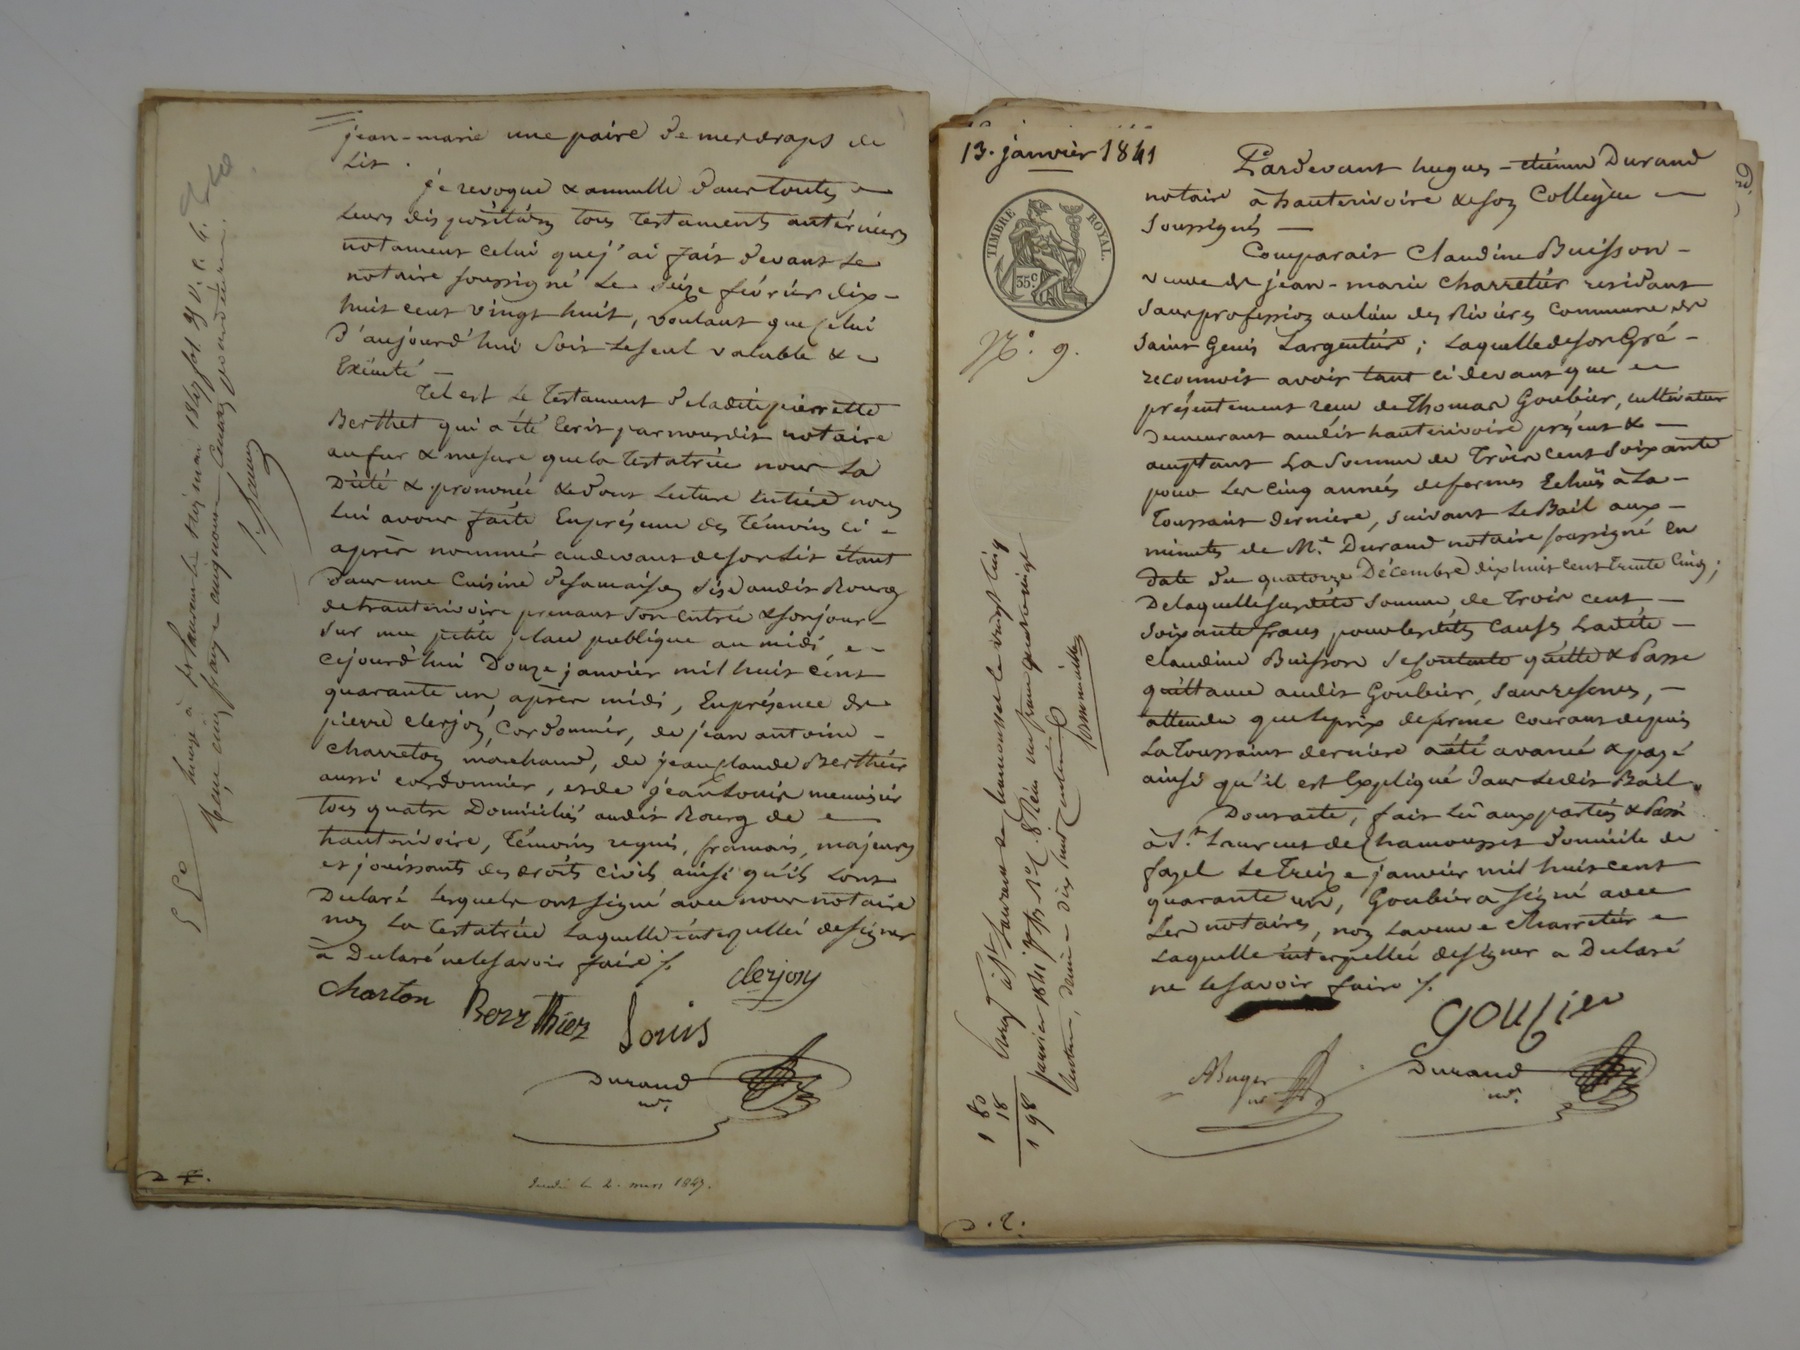 jean-marie une paire de mes draps de
Lit.
je revoque & annulle dans toutes
leurs dispositions tous testaments antérieurs
notament celui que j'ai fait devant Le
notaire soussigné Le seize février dix-
huit cent vingt huit, voulant que celui
d'aujourd'hui soit Le seul valable &
Exécuté —
Tel est Le Testament de ladite pierrette
Berthet qui a été Ecrit par nousdit notaire
au fur & mesure que la Testatrice nous La
Dicté & prononcé & dont Lecture Entière nous
Lui avons faite En présence des Témoins ci-
après nommés au devant de son Lit étant
dans une Cuisine de sa maison sise audit Bourg
de hauterivoire prenant son entrée & son jour
Sur une petite place publique au midi,
Cejourd'hui Douze janvier mil huit cent
quarante un, après midi, En présence de
pierre clerjon, Cordonnier, de jean antoine
Charreton marchand, de jean Claude Berthier
aussi cordonnier, et de jean Louis menuisier
tous quatre Domiciliés audit Bourg de
hauterivoire, Témoins requis, francais, majeurs
et jouissants des droits civils ainsi qu'ils L'ont
Declaré Lesquels ont signé avec nous notaire
non La testatrice Laquelle interpellée de signer
à Declaré ne Le savoir faire ./.
clerjon
charton Berrthier Louis
Durand
nre.
2 f.
mars 1849.
13. janvier 1841
TIMBRE ROYAL
35 c
N°. 9.
Pardevant hugues-étienne Durand
notaire à hauterivoire & son Collègue
Soussignés —
Comparait Claudine Buisson -
veuve de jean-marie Charretier residant
sans profession au lieu des Rivières Commune de
Saint Genis Largentière ; Laquelle de son Gré -
reconnoit avoir tant ci devant que
présentement recu de Thomas Goubier, cultivateur
demeurant audit hauterivoire présent & -
acceptant La Somme de Trois cent Soixante
pour Les cinq années de fermes Echues à La -
Toussaint derniere, suivant Le Bail aux -
minutes de Me. Durand notaire soussigné En
date du quatorze Décembre dix huit cent trente Cinq ;
De laquelle susdite somme de Trois cent —
Soixante francs pour lesdites causes Ladite -
claudine Buisson se contente quitte & Passe
quittance audit Goubier, sans reserves, -
attendu que le prix de ferme courant depuis
La Toussaint derniere a été avancé & payé
ainsi qu'il est Expliqué dans Ledit Bail.
Dont acte, fait Lû aux parties & Passé
à St. Laurent de Chamousset domicile de
fayel Le Treize janvier mil huit cent
quarante un, Goubier a signé avec
Les notaires, non La veuve Charretier
Laquelle interpellée de signer a Declaré
ne Le savoir faire ./.
goubier
Durand
nre.
1 80
18
1 98